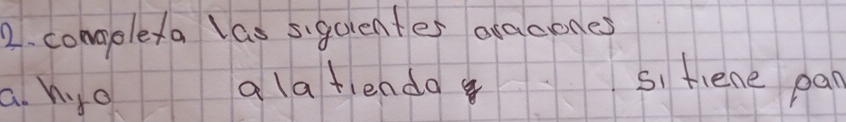 2. completa las siguientes oraciones
a. hijo a la tienda y si tiene pan